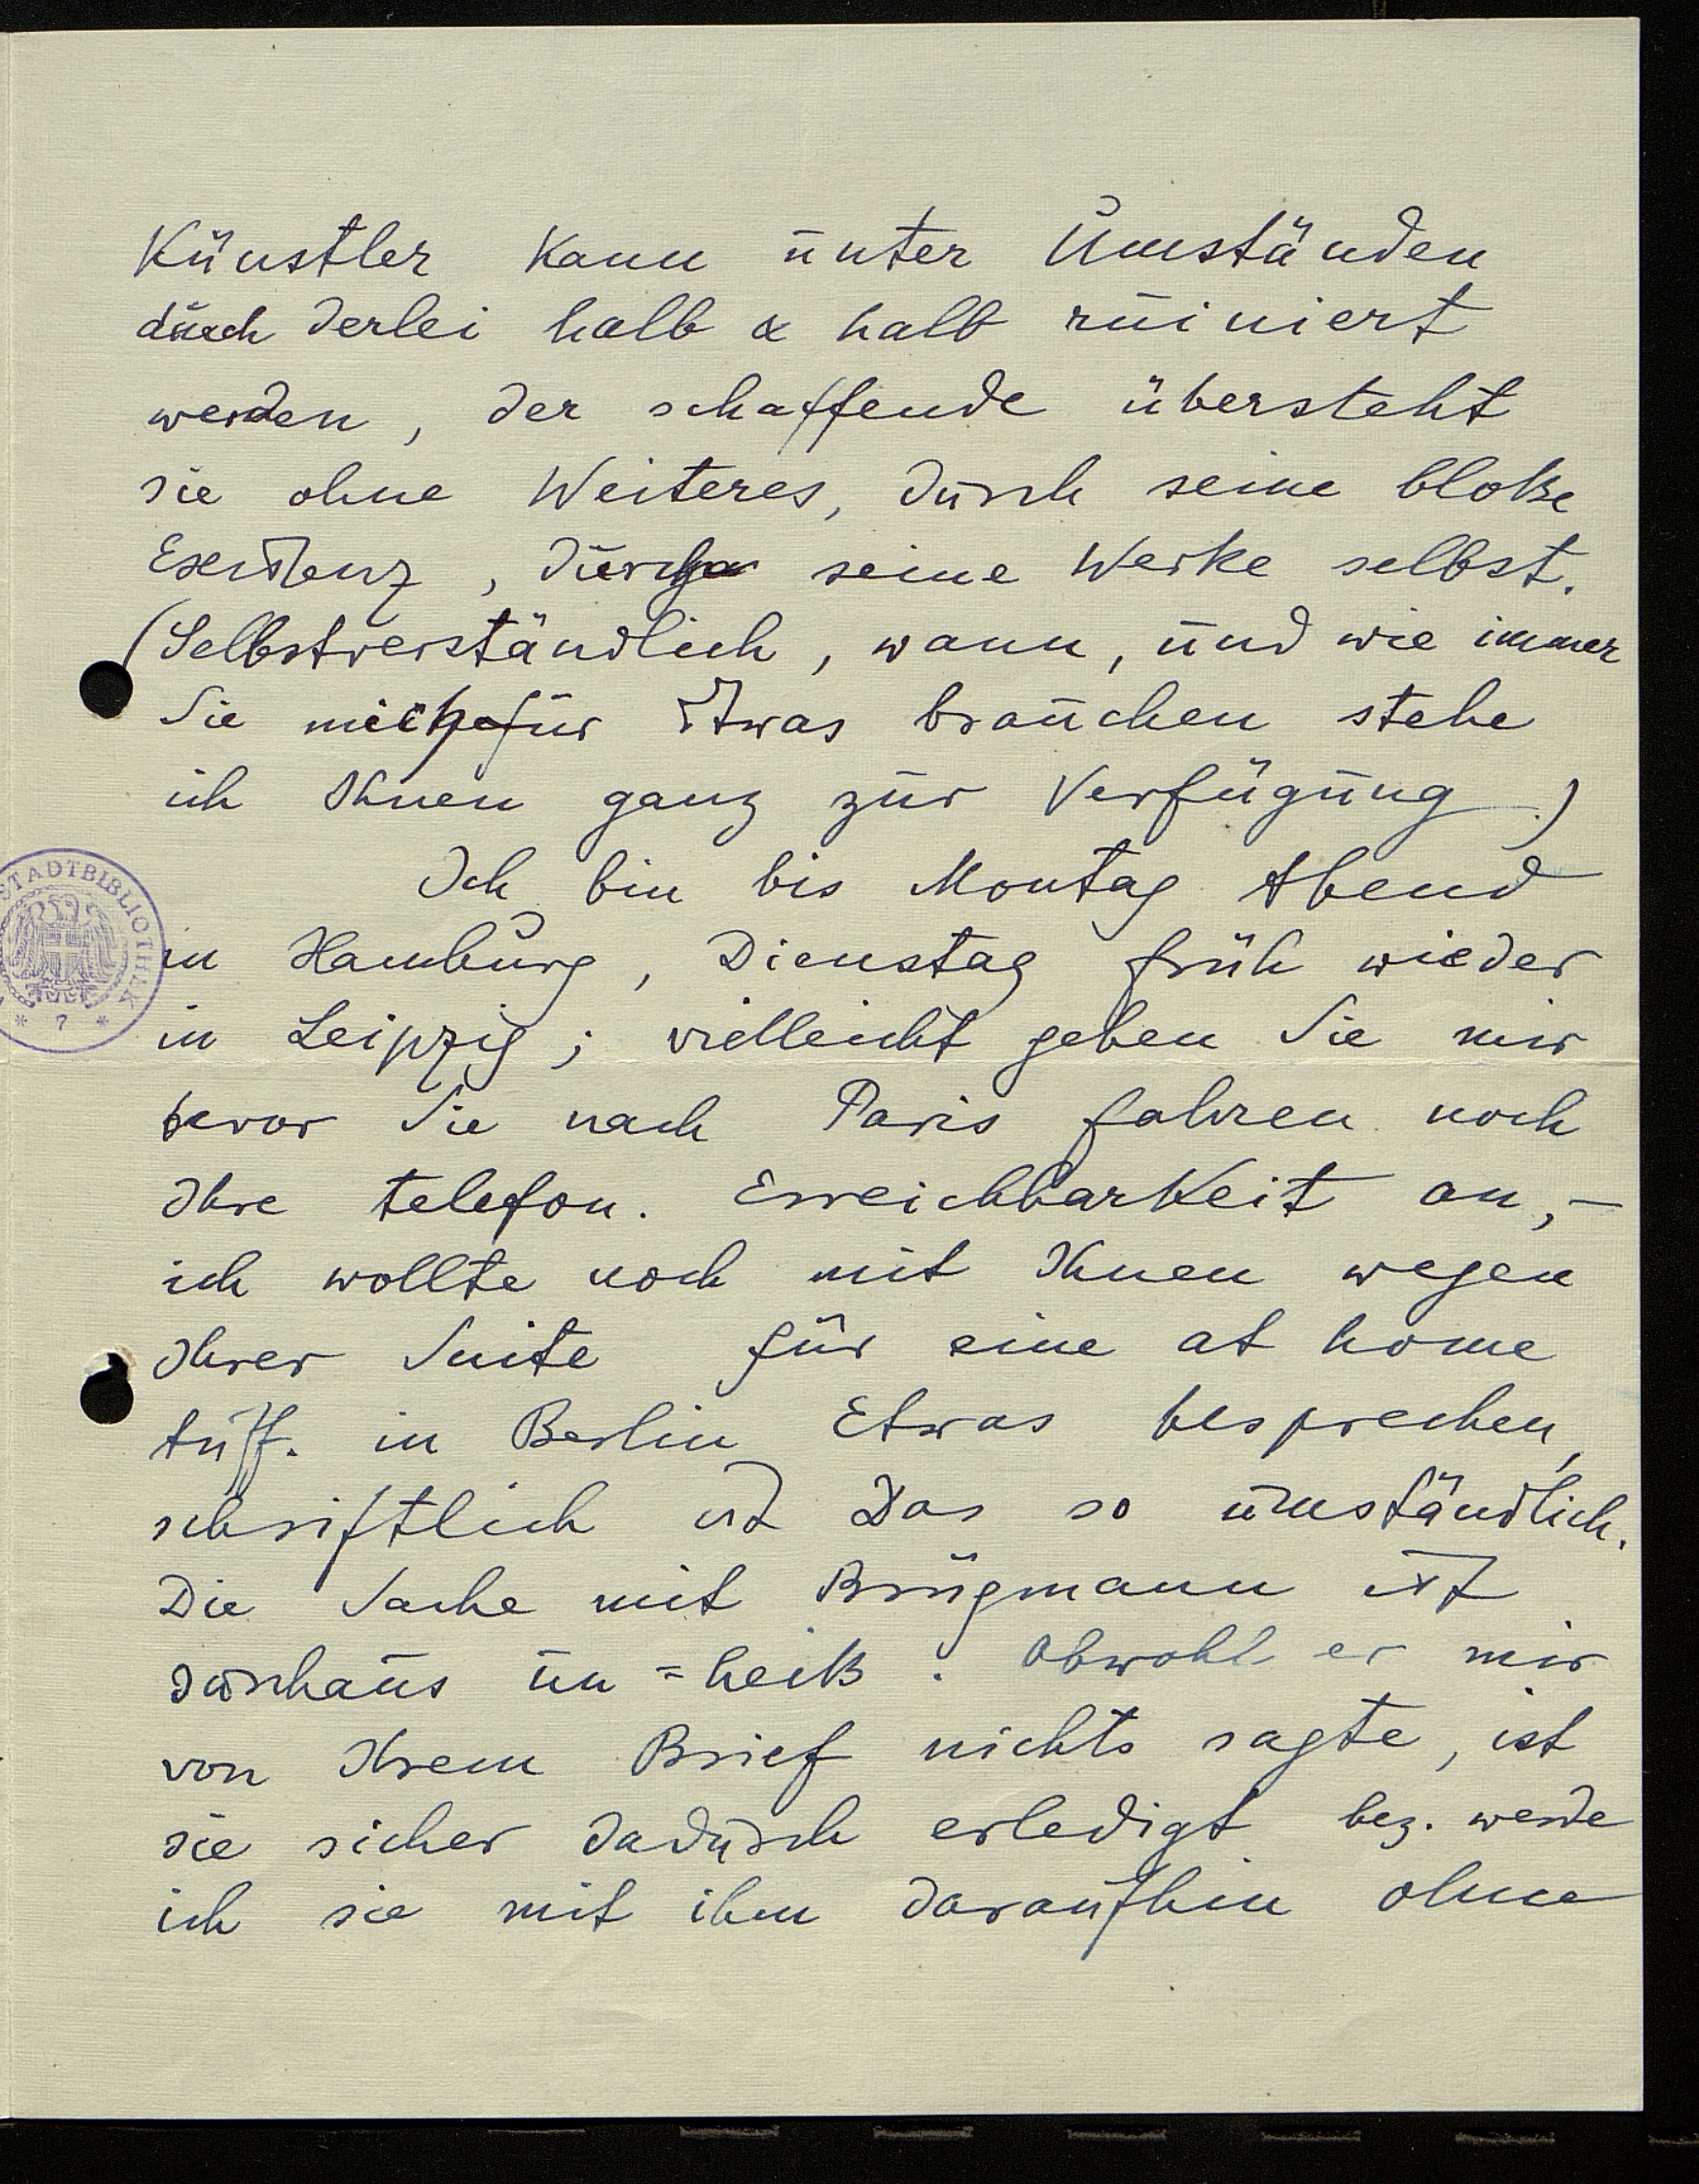 Künstler kann unter Umständen
durch derlei halb & halb ruiniert
werden, der schaffende übersteht
sie ohne Weiteres, durch seine bloße
Existenz, durch seine Werke selbst.
(Selbstverständlich, wann, und wie immer
Sie mich für Etwas brauchen stehe
ich Ihnen ganz zur Verfügung.)
Ich bin bis Montag Abend
in Hamburg, Dienstag früh wieder
in Leipzig; vielleicht geben Sie mir
bevor Sie nach Paris fahren noch
Ihre telefon. Erreichbarkeit an, –
ich wollte noch mit Ihnen wegen
Ihrer Suite für eine at home
Auff. in Berlin Etwas besprechen,
schriftlich ist Das so umständlich.
Die Sache mit Brügmann ist
durchaus un=heiß. Obwohl er mir
von Ihrem Brief nichts sagte, ist
sie sicher dadurch erledigt bez. werde
ich sie mit ihm daraufhin ohne
STADTBIBLIOTHEK
* 7 *